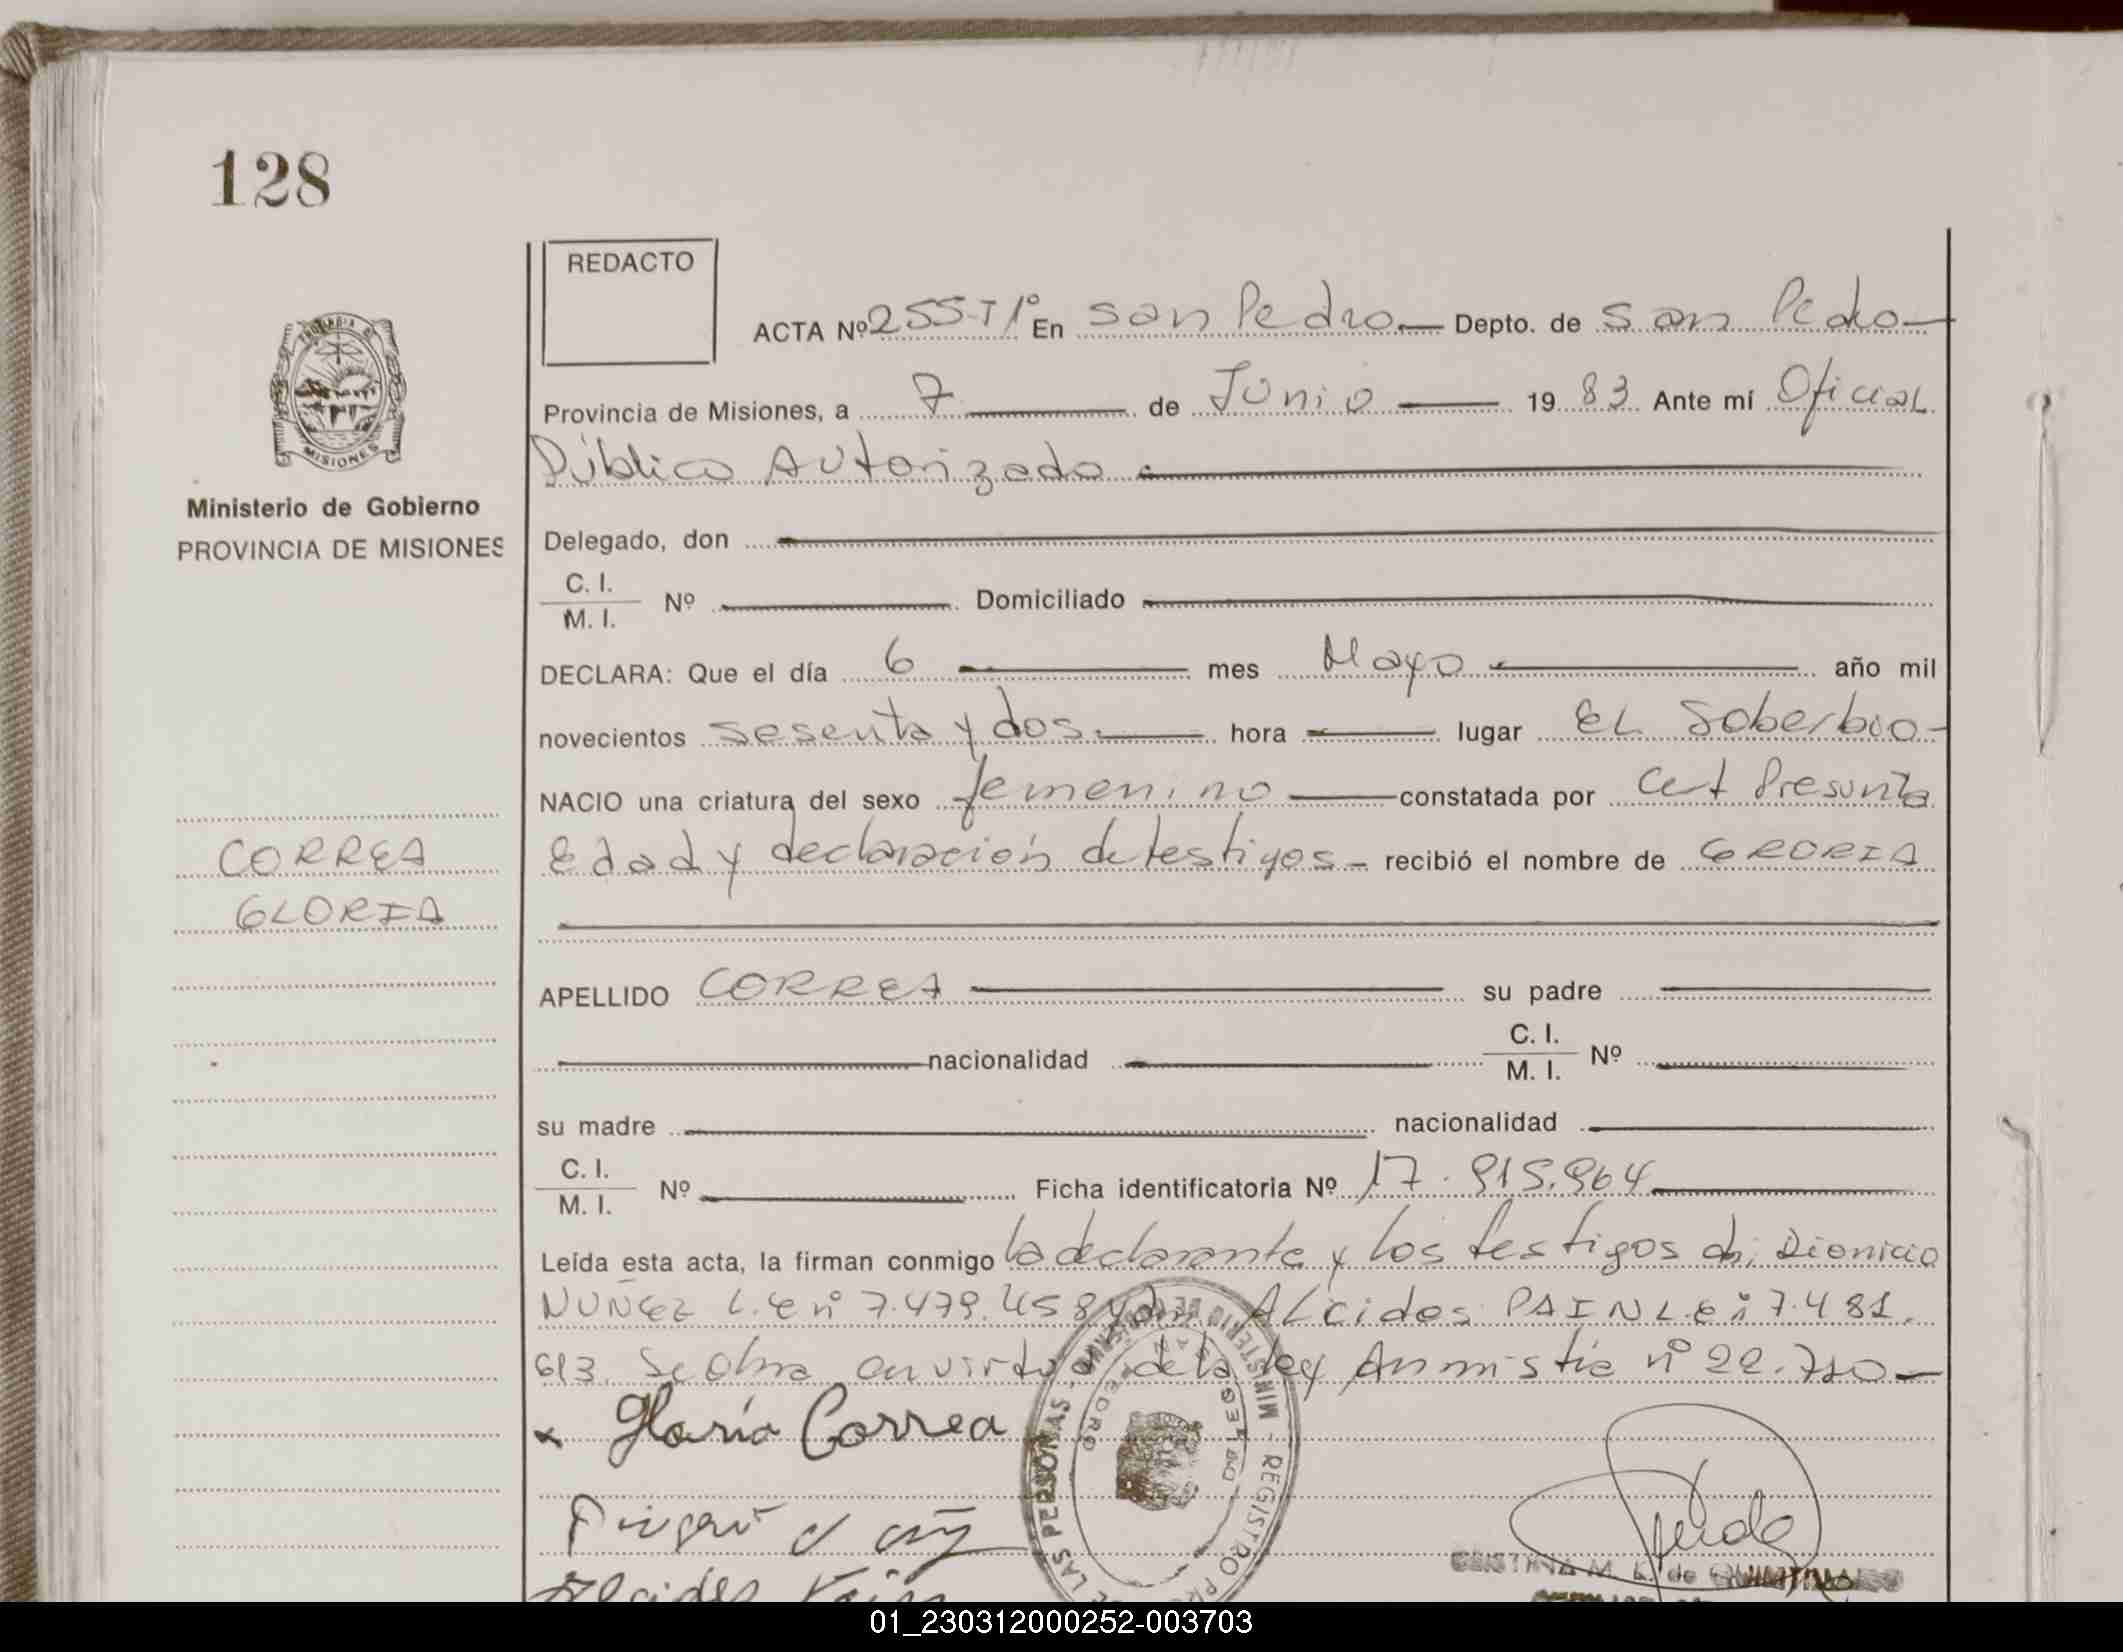 128
REDACTO
ACTA Nº 255 T1º En San Pedro Depto. de San Pedro
Provincia de Misiones, a 7 de Junio 1983 Ante mí Oficial
Público Autorizado
MISIONES
Ministerio de Gobierno
PROVINCIA DE MISIONES
Delegado, don
C. I.
M. I. Nº Domiciliado
DECLARA: Que el día 6 mes Mayo año mil
novecientos sesenta y dos hora lugar EL Soberbio
NACIO una criatura del sexo femenino constatada por Cert Presunta
Edad y declaración de testigos recibió el nombre de GRORIA
CORREA
GLORIA
APELLIDO CORREA su padre
nacionalidad C. I.
M. I. Nº
su madre nacionalidad
C. I.
M. I. Nº Ficha identificatoria Nº 17.915.964
Leída esta acta, la firman conmigo la declarante y los testigos Dionicio
NUÑEZ L.E nº 7.479.458 y Alcides PAIN L.E nº 7.481.
613. Se obra en virtud de la ley Anmistia nº 22.710
x Gloria Correa
MINISTERIO DE GOBIERNO - REGISTRO DE LAS PERSONAS
SAN PEDRO
CRISTINA M. de
01_230312000252-003703